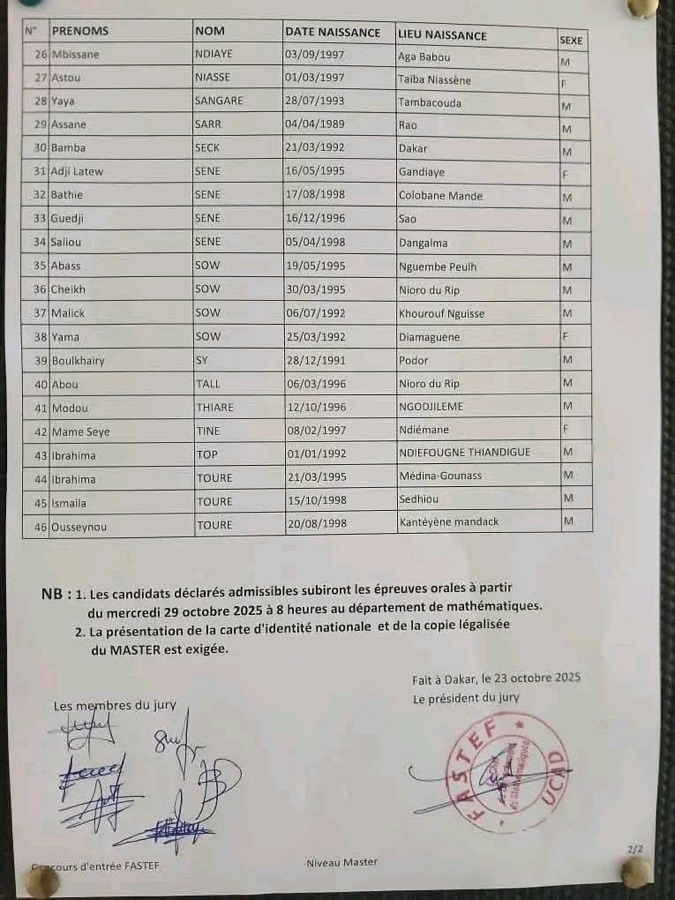 N° PRENOMS NOM DATE NAISSANCE LIEU NAISSANCE SEXE
26 Mbissane NDIAYE 03/09/1997 Aga Babou M
27 Astou NIASSE 01/03/1997 Taiba Niassène F
28 Yaya SANGARE 28/07/1993 Tambacouda M
29 Assane SARR 04/04/1989 Rao M
30 Bamba SECK 21/03/1992 Dakar M
31 Adji Latew SENE 16/05/1995 Gandiaye F
32 Bathie SENE 17/08/1998 Colobane Mande M
33 Guedji SENE 16/12/1996 Sao M
34 Saliou SENE 05/04/1998 Dangalma M
35 Abass SOW 19/05/1995 Nguembe Peulh M
36 Cheikh SOW 30/03/1995 Nioro du Rip M
37 Malick SOW 06/07/1992 Khourouf Nguisse M
38 Yama SOW 25/03/1992 Diamaguene F
39 Boulkhairy SY 28/12/1991 Podor M
40 Abou TALL 06/03/1996 Nioro du Rip M
41 Modou THIARE 12/10/1996 NGODJILEME M
42 Mame Seye TINE 08/02/1997 Ndiémane F
43 Ibrahima TOP 01/01/1992 NDIEFOUGNE THIANDIGUE M
44 Ibrahima TOURE 21/03/1995 Médina-Gounass M
45 Ismaila TOURE 15/10/1998 Sedhiou M
46 Ousseynou TOURE 20/08/1998 Kantéyène mandack M
NB : 1. Les candidats déclarés admissibles subiront les épreuves orales à partir
du mercredi 29 octobre 2025 à 8 heures au département de mathématiques.
2. La présentation de la carte d'identité nationale et de la copie légalisée
du MASTER est exigée.
Fait à Dakar, le 23 octobre 2025
Les membres du jury
Le président du jury
FASTEF * UCAD
2/2
Concours d'entrée FASTEF
Niveau Master